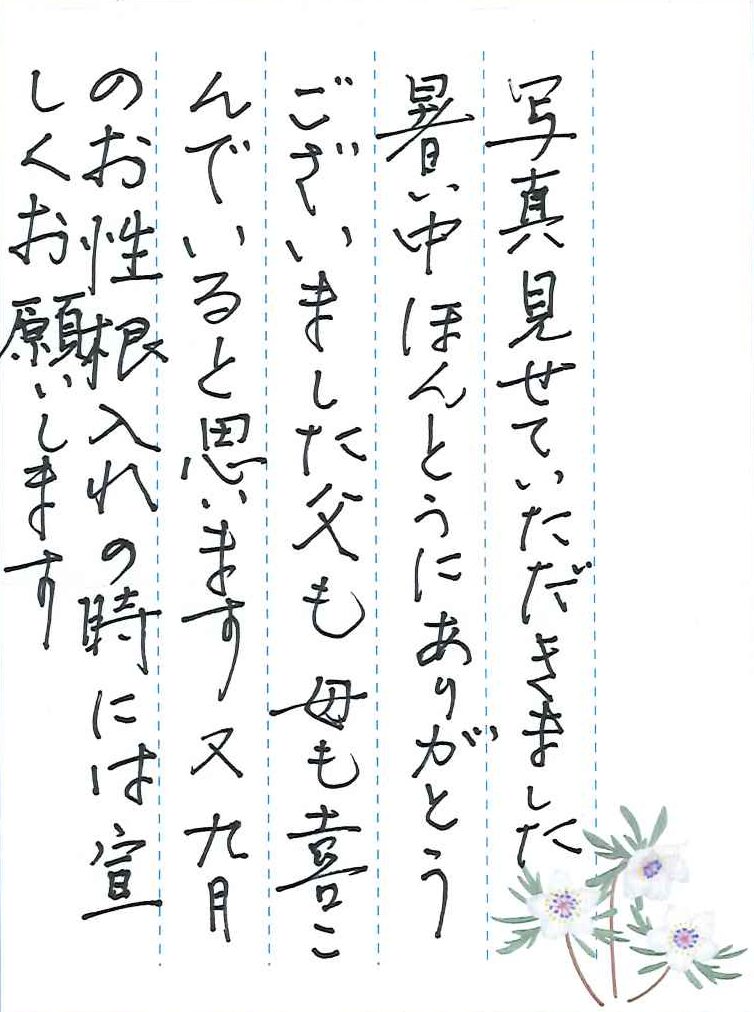 写真見せていただきました
暑い中ほんとうにありがとう
ございました父も母も喜こ
んでいると思います又九月
のお性根入れの時には宣
しくお願いします